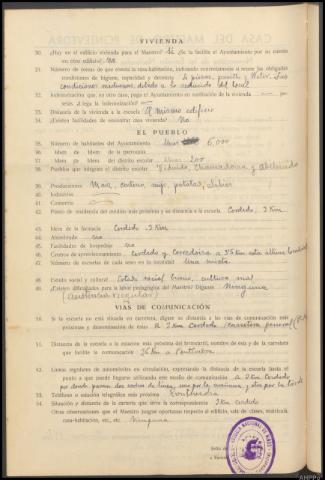 CASA DEL
VIVIENDA
30. ¿Hay en el edificio vivienda para el Maestro? Si ¿Se la facilita el Ayuntamiento por su cuenta
en otro edificio? no
31. Número de piezas de que consta la casa-habitación, indicando concretamente si reune las obligadas
condiciones de higiene, capacidad y decencia 4 piezas, pasillo y Water. Las
condiciones medianas, debido a lo reducido del local
32. Indemnizaciones que, en otro caso, paga el Ayuntamiento en sustitución de la vivienda — pe-
setas. ¿Llega la indemnización? —
33. Distancia de la vivienda a la escuela El mismo edificio
34. ¿Existen facilidades de encontrar casa vivienda? No
EL PUEBLO
35. Número de habitantes del Ayuntamiento Unos 6,000
36. Idem de Idem de la parroquia
37. Idem de Idem del distrito escolar Unos 200
38. Pueblos que integran el distrito escolar
39. Producciones Maiz, centeno, trigo, patatas,
40. Industrias —
41. Comercio —
42. Punto de residencia del médico más próximo y su distancia a la escuela Cerdedo, 3 Km.
43. Idem de la farmacia Cerdedo 3 Km.
44. Alumbrado no
45. Facilidades de hospedaje no
46. Centros de aprovisionamiento Cerdedo y
47. Número de escuelas de cada sexo en la localidad Una mixta
48. Estado social y cultural Estado social bueno, cultura mal
49. ¿Existen dificultades para la labor pedagógica del Maestro? Díganse Ninguna
(asistencia regular)
VIAS DE COMUNICACIÓN
50. Si la escuela no está situada en carretera, dígase su distancia a las vías de comunicación más
próximas y denominación de éstas A 3 Km Cerdedo (carretera general)
51. Distancia de la escuela a la estación más próxima del ferrocarril, nombre de ésta y de la carretera
que facilita la comunicación 36 Km a Pontevedra
52. Líneas regulares de automóviles en circulación, expresando la distancia de la escuela hasta el
punto a que puede llegarse utilizando este medio de comunicación a 3 Km Cerdedo
por donde pasan dos coches de línea, uno por la mañana y otro por la tarde
53. Teléfono o estación telegráfica más próxima Pontevedra
54. Situación y distancia de la cartería que sirve la correspondencia 3 Km Cerdedo
Otras observaciones que el Maestro juzgue oportunas respecto al edificio, sala de clases, matrícula,
casa-habitación, etc., etc. Ninguna
Sello de
AHPPo